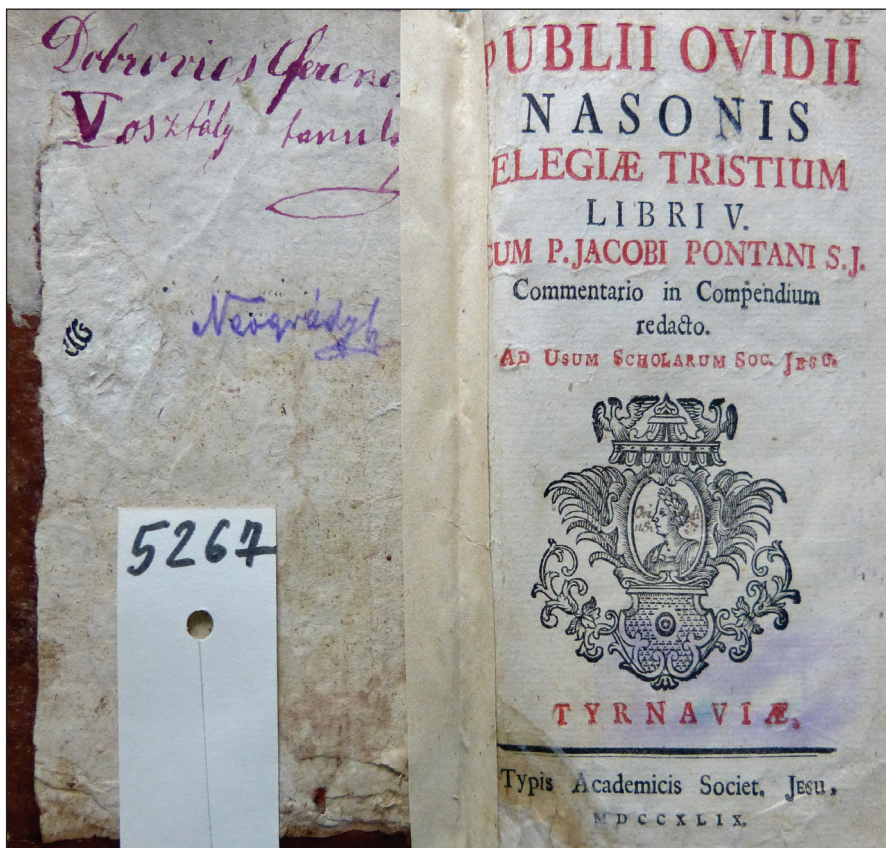 Dobrovics Ferenc
V osztály tanuló
Neogrády
5267
PUBLII OVIDII
NASONIS
ELEGIÆ TRISTIUM
LIBRI V.
CUM P. JACOBI PONTANI S.J.
Commentario in Compendium
redacto.
AD USUM SCHOLARUM SOC. JESU.
TYRNAVIÆ,
Typis Academicis Societ. JESU,
MDCCXLIX.